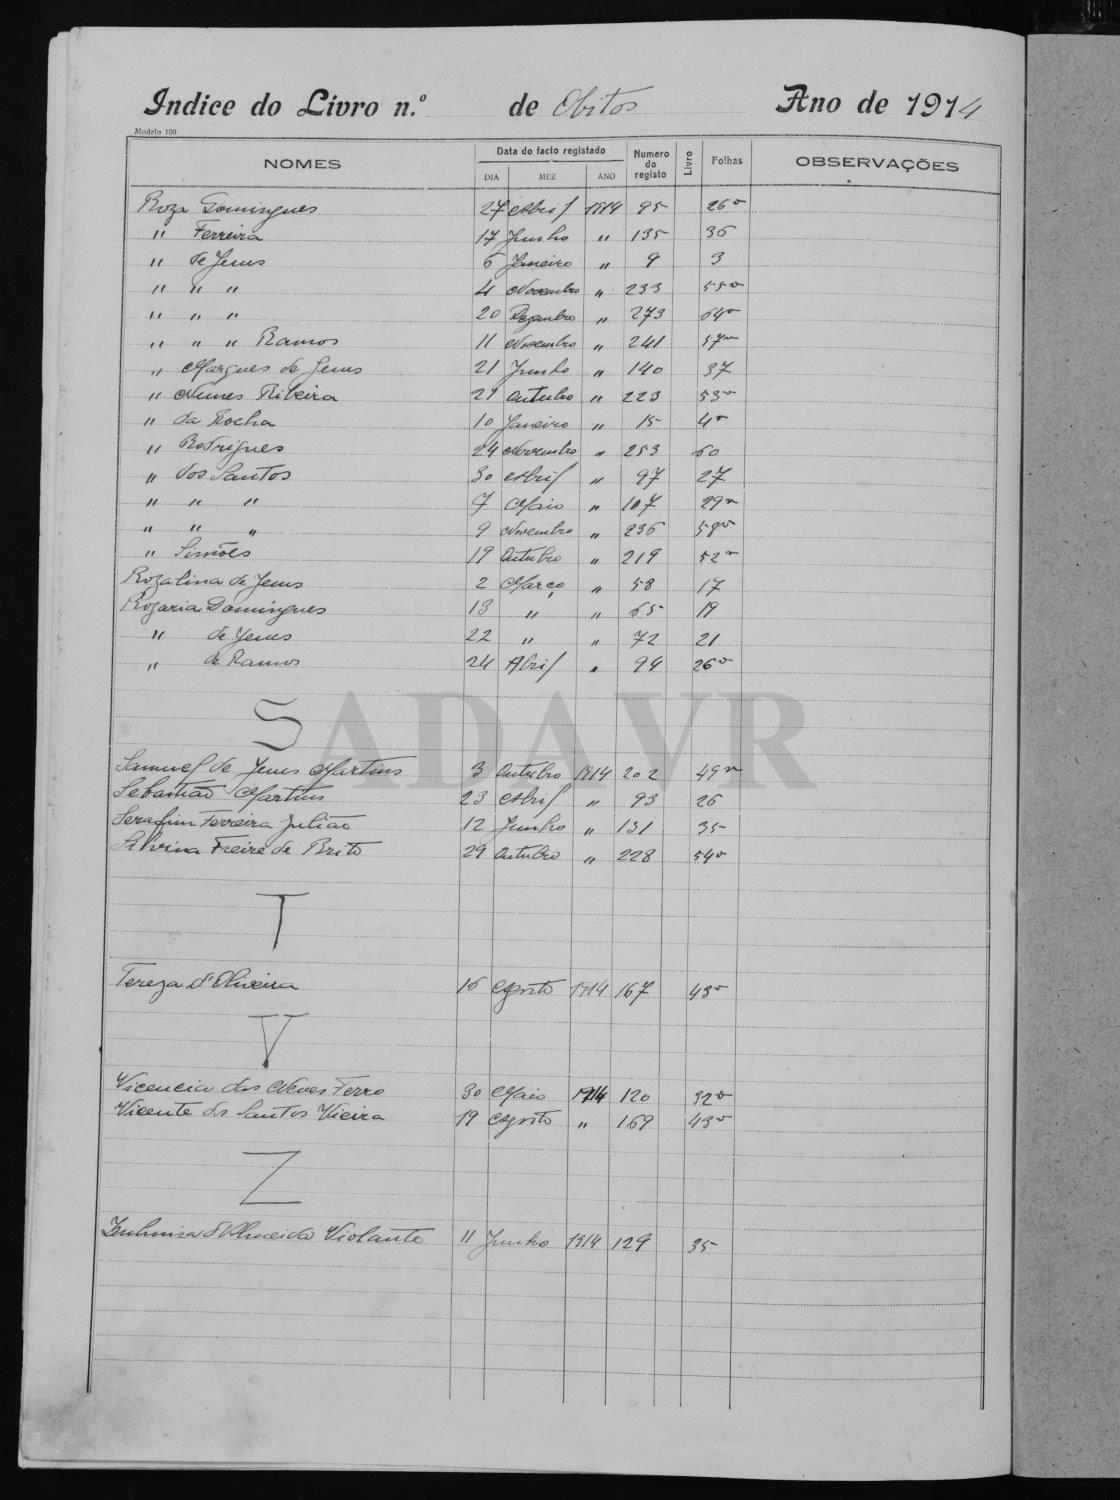 Indice do Livro n.º de Obitos Ano de 1914
Modelo 109
NOMES Data do facto registado Numero do registo Livro Folhas OBSERVAÇÕES
DIA MEZ ANO
Roza Domingues 27 Abril 1914 95 26v
" Ferreira 17 Junho " 135 36
" de Jesus 6 Janeiro " 9 3
" " " 4 Novembro " 233 55v
" " " 20 Dezembro " 273 64v
" " " Ramos 11 Novembro " 241 57v
" Marques de Jesus 21 Junho " 140 37
" Nunes Ribeira 21 Outubro " 223 53v
" da Rocha 10 Janeiro " 15 4v
" Rodrigues 24 Novembro " 253 60
" dos Santos 30 Abril " 97 27
" " " 7 Maio " 107 29v
" " " 9 Novembro " 236 58v
" Simões 19 Outubro " 219 52v
Rozalina de Jesus 2 Março " 58 17
Rozaria Domingues 13 " " 65 19
" de Jesus 22 " " 72 21
" de Ramos 24 Abril " 94 26v
S
ADAVR
Samuel de Jesus Martins 3 Outubro 1914 202 49v
Sebastião Martins 23 Abril " 93 26
Serafim Ferreira Julião 12 Junho " 131 35
Silvina Freire de Brito 29 Outubro " 228 54v
T
Tereza d'Oliveira 16 Agosto 1914 167 43v
V
Vicencia das Neves Ferro 30 Maio 1914 120 32v
Vicente dos Santos Vieira 19 Agosto " 169 43v
Z
Zulmira d'Almeida Violante 11 Junho 1914 129 35